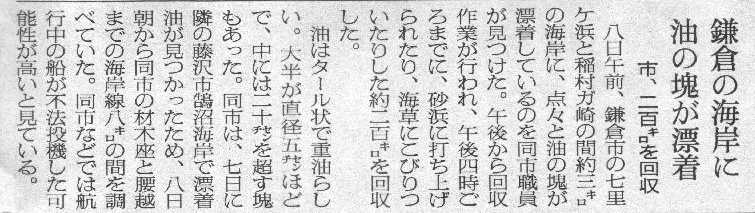 鎌倉の海岸に
油の塊が漂着
市、二百㌔を回収
八日午前、鎌倉市の七里
ケ浜と稲村ガ崎の間約三㌔
の海岸に、点々と油の塊が
漂着しているのを同市職員
が見つけた。午後から回収
作業が行われ、午後四時ご
ろまでに、砂浜に打ち上げ
られたり、海草にこびりつ
いたりした約二百㌔を回収
した。
油はタール状で重油らし
い。大半が直径五㌢ほど
で、中には二十㌢を超す塊
もあった。同市は、七日に
隣の藤沢市鵠沼海岸で漂着
油が見つかったため、八日
朝から同市の材木座と腰越
までの海岸線八㌔の間を調
べていた。同市などでは航
行中の船が不法投機した可
能性が高いと見ている。